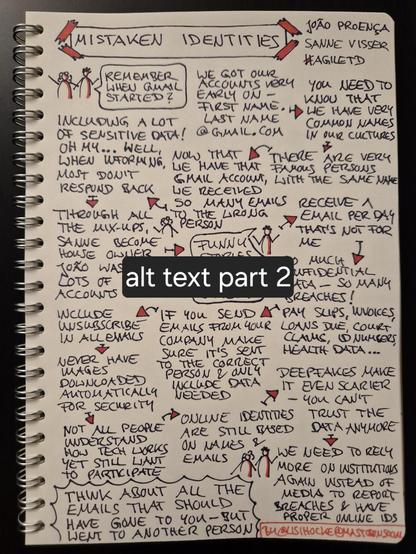 MISTAKEN IDENTITIES
JOÃO PROENÇA
SANNE VISSER
#AGILETD
REMEMBER
WHEN GMAIL
STARTED?
WE GOT OUR
ACCOUNTS VERY
EARLY ON –
FIRST NAME.
LAST NAME
@GMAIL.COM
YOU NEED TO
KNOW THAT
WE HAVE VERY
COMMON NAMES
IN OUR CULTURES
THERE ARE VERY
FAMOUS PERSONS
WITH THE SAME NAME
NOW THAT
WE HAVE THAT
GMAIL ACCOUNT,
WE RECEIVED
SO MANY EMAILS
TO THE WRONG
PERSON
INCLUDING A LOT
OF SENSITIVE DATA!
OH MY... WELL,
WHEN INFORMING,
MOST DON'T
RESPOND BACK
THROUGH ALL
THE MIX-UPS,
SANNE BECOME
HOUSE OWNER
JOÃO WAS
LOTS OF
ACCOUNTS
FUNNY
RECEIVE A
EMAIL PER DAY
THAT'S NOT FOR
ME
MUCH
DATA – SO MANY
BREACHES!
alt text part 2
PAY SLIPS, INVOICES,
LOANS DUE, COURT
CLAIMS, ID NUMBERS,
HEALTH DATA...
IF YOU SEND
EMAILS FROM YOUR
COMPANY MAKE
SURE IT'S SENT
TO THE CORRECT
PERSON & ONLY
INCLUDE DATA
NEEDED
INCLUDE
UNSUBSCRIBE
IN ALL EMAILS
NEVER HAVE
IMAGES
DOWNLOADED
AUTOMATICALLY
FOR SECURITY
NOT ALL PEOPLE
UNDERSTAND
HOW TECH WORKS
YET STILL WANT
TO PARTICIPATE
ONLINE IDENTITIES
ARE STILL BASED
ON NAMES &
EMAILS
DEEPFAKES MAKE
IT EVEN SCARIER
– YOU CAN'T
TRUST THE
DATA ANYMORE
WE NEED TO RELY
MORE ON INSTITUTIONS
AGAIN INSTEAD OF
MEDIA TO REPORT
BREACHES & HAVE
PROPER ONLINE IDS
THINK ABOUT ALL THE
EMAILS THAT SHOULD
HAVE GONE TO YOU – BUT
WENT TO ANOTHER PERSON
BY/@LISIHOCKE@MASTODON.SOCIAL